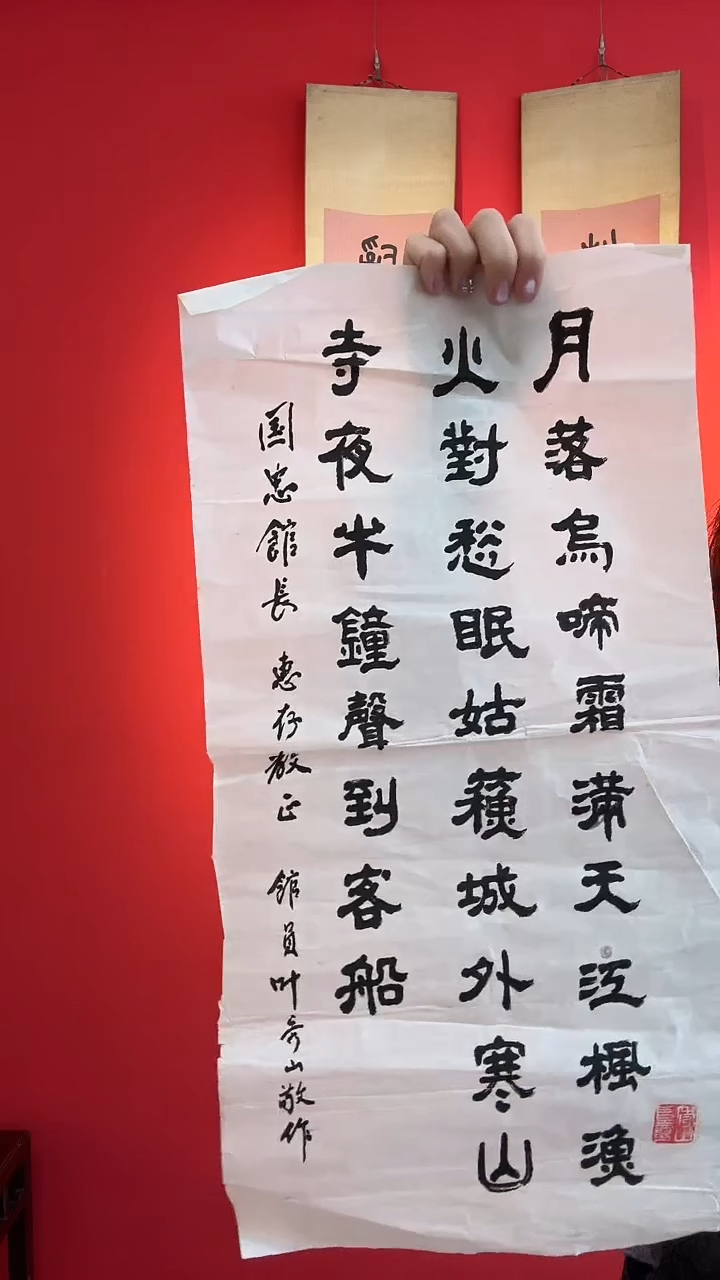 月落烏啼霜滿天江楓漁
火對愁眠姑蘓城外寒山
寺夜半鐘聲到客船
国忠館長 惠存教正 館員叶秀山敬作